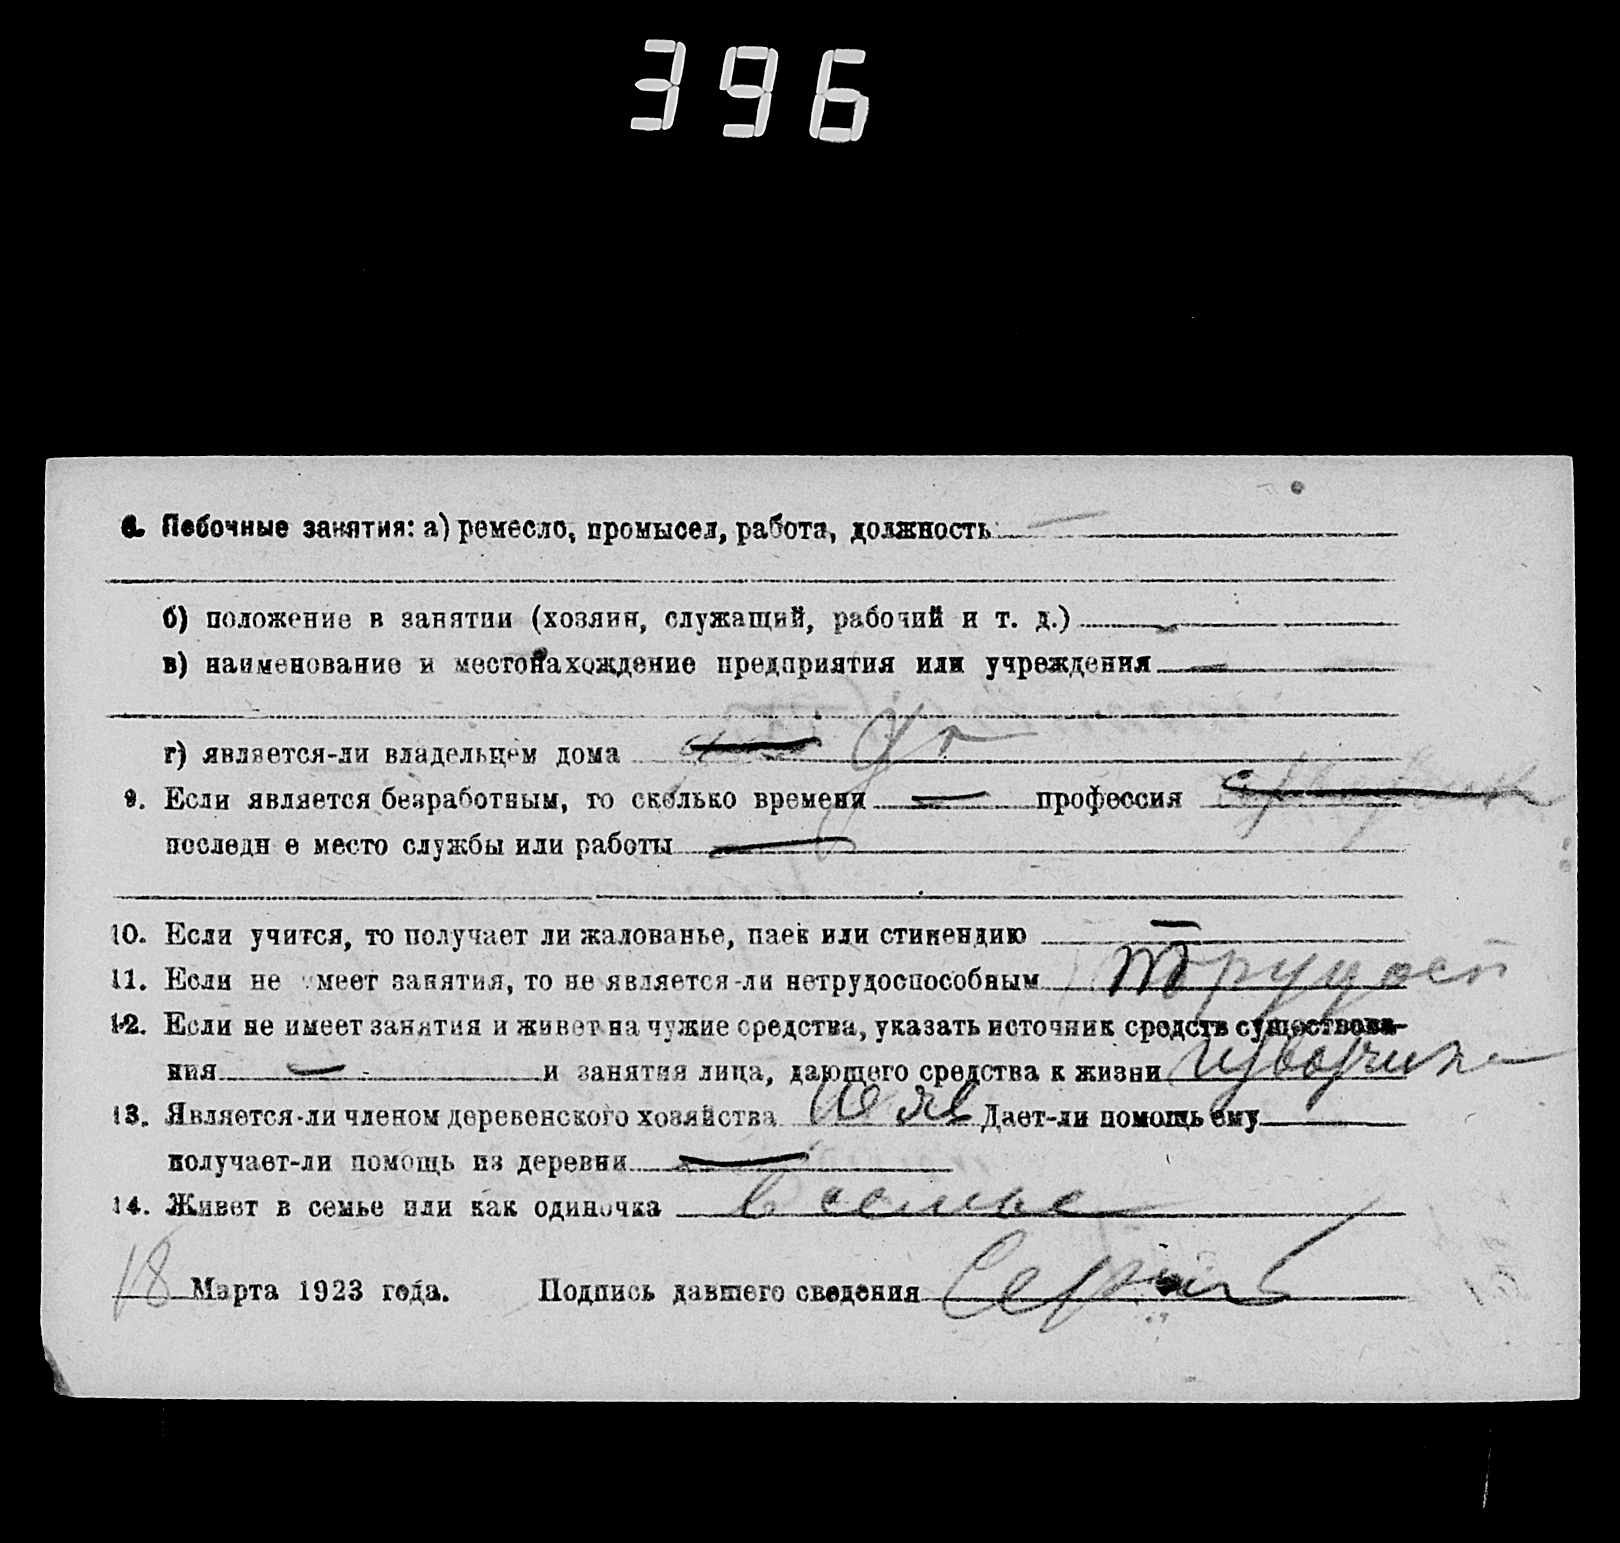 396
8. Побочные занятия: а) ремесло, промысел, работа, должность —
б) положение в занятии (хозяин, служащий, рабочий и т. д.) —
в) наименование и местонахождение предприятия или учреждения —
г) является-ли владельцем дома
9. Если является безработным, то сколько времени — профессия
последн е место службы или работы —
10. Если учится, то получает ли жалованье, паек или стипендию —
11. Если не имеет занятия, то не является-ли нетрудоспособным трудосп
12. Если не имеет занятия и живет на чужие средства, указать источник средств существова-
ния — и занятия лица, дающего средства к жизни извозчик
13. Является-ли членом деревенского хозяйства не яв Дает-ли помощь ему
получает-ли помощь из деревни —
14. Живет в семье или как одиночка в семье
18 Марта 1923 года. Подпись давшего сведения